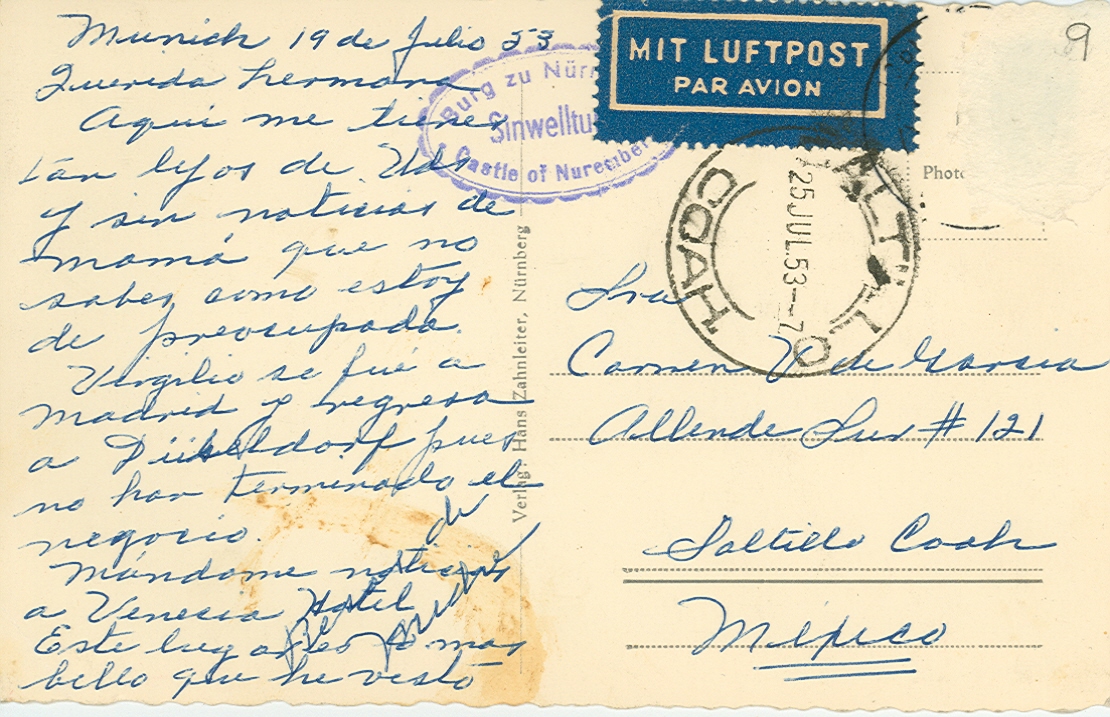 Munich 19 de Julio 53
Querida hermana
Aqui me tienes
tan lejos de Uds
y sin noticias de
mamá que no
sabes como estoy
de preocupada.
Virgilio se fué a
Madrid y regresa
a Düsseldorf pues
no han terminado el
negocio.
Mándame noticias
a Venecia Hotel
de
Este lugar es lo mas
bello que he visto
Burg zu Nürn
Sinwelltu
Castle of Nurember
MIT LUFTPOST
PAR AVION
9
Photo
SALTILLO
COAH
25 JUL.53--7
Verlag: Hans Zahnleiter, Nürnberg
Sra
Carmen V. de Garcia
Allende Sur # 121
Saltillo Coah
México